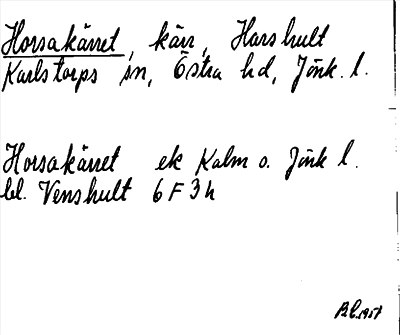 Horsakärret, kärr, Harshult
Karlstorps sn, Östra hd, Jönk. l.
Horsakärret ek Kalm o. Jönk l.
bl. Venshult 6 F 3 h
1957